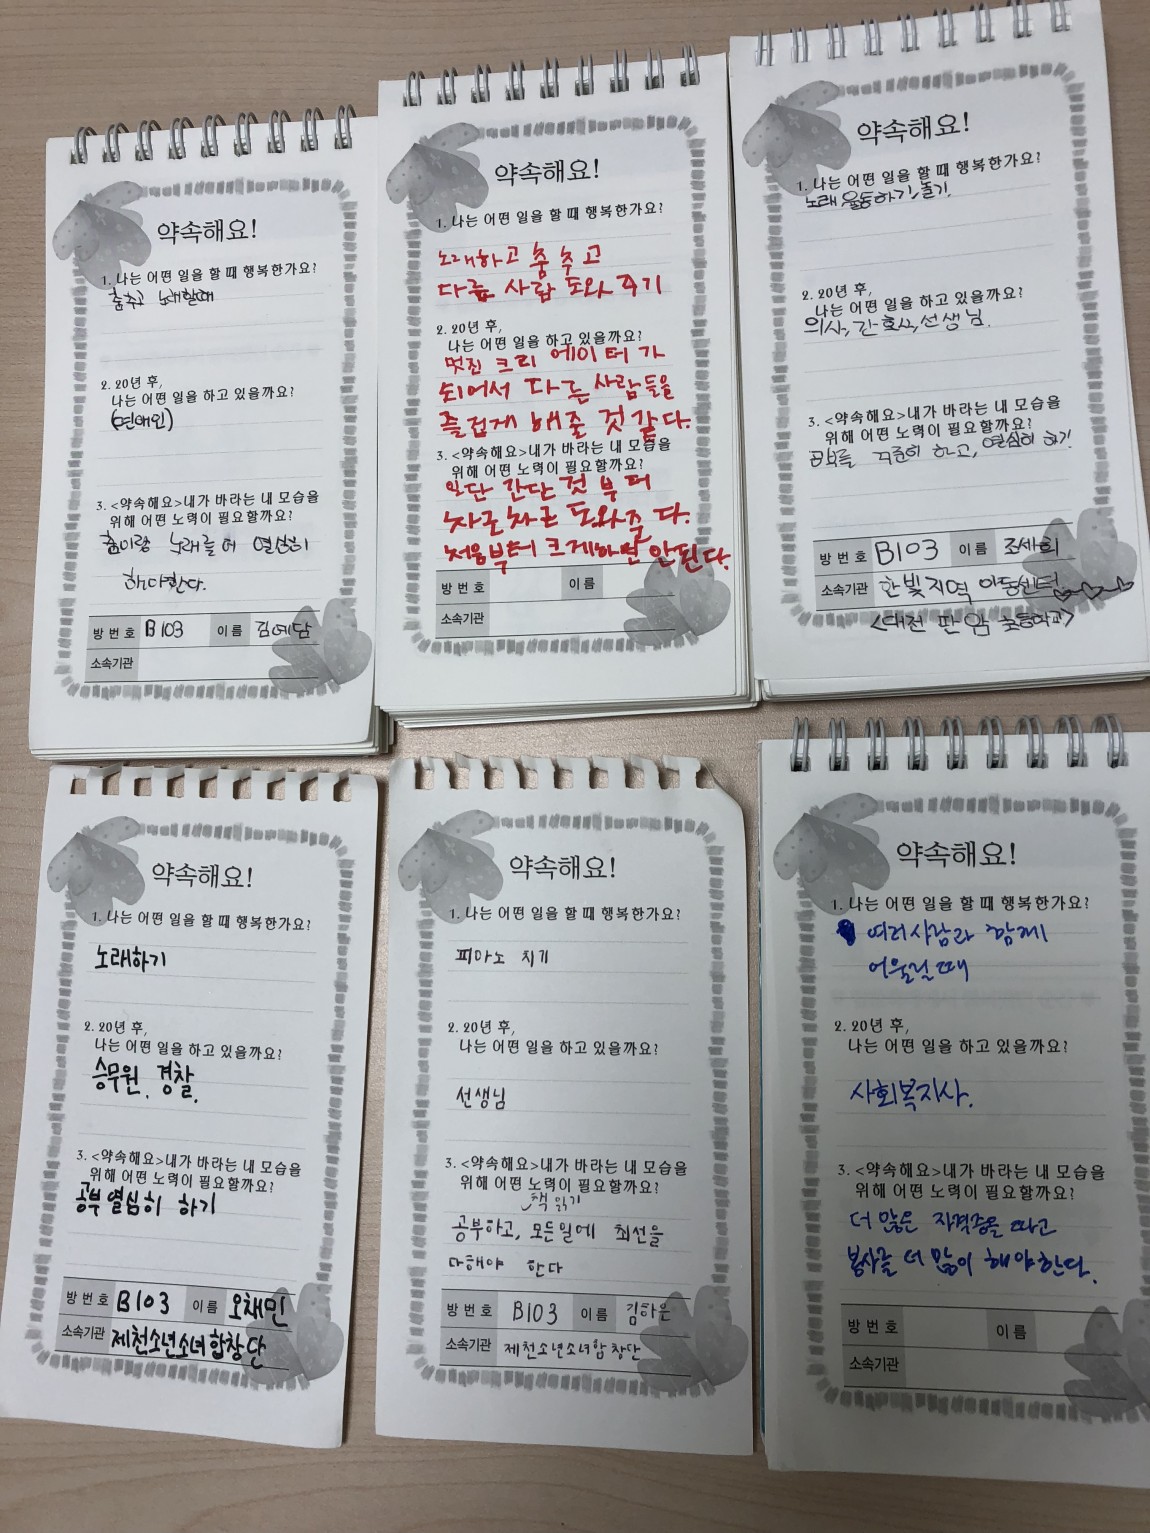 약속해요!
1. 나는 어떤 일을 할 때 행복한가요?
춤추고 노래할때
2. 20년 후,
나는 어떤 일을 하고 있을까요?
(연애인)
3. <약속해요>내가 바라는 내 모습을
위해 어떤 노력이 필요할까요?
춤이랑 노래를 더 열심히
해야한다.
방 번 호 B103 이 름 김예담
소속기관
약속해요!
1. 나는 어떤 일을 할 때 행복한가요?
노래하고 춤추고
다른 사람 도와주기
2. 20년 후,
나는 어떤 일을 하고 있을까요?
멋진 크리에이터가
되어서 다른 사람들을
즐겁게 해줄 것 같다.
3. <약속해요>내가 바라는 내 모습을
위해 어떤 노력이 필요할까요?
일단 간단것 부터
차근차근 도와준다.
처음부터 크게하면 안된다.
방 번 호 이 름
소속기관
약속해요!
1. 나는 어떤 일을 할 때 행복한가요?
노래 율동하기, 놀기.
2. 20년 후,
나는 어떤 일을 하고 있을까요?
의사, 간호사, 선생님.
3. <약속해요>내가 바라는 내 모습을
위해 어떤 노력이 필요할까요?
공부를 꾸준히 하고, 열심히 하기!
방 번 호 B103 이 름 조세희
소속기관 한빛지역 아동센터
<대전 판암 초등학교>
약속해요!
1. 나는 어떤 일을 할 때 행복한가요?
노래하기
2. 20년 후,
나는 어떤 일을 하고 있을까요?
승무원, 경찰.
3. <약속해요>내가 바라는 내 모습을
위해 어떤 노력이 필요할까요?
공부 열심히 하기
방 번 호 B103 이 름 오채민
소속기관 제천소년소녀합창단
약속해요!
1. 나는 어떤 일을 할 때 행복한가요?
피아노 치기
2. 20년 후,
나는 어떤 일을 하고 있을까요?
선생님
3. <약속해요>내가 바라는 내 모습을
위해 어떤 노력이 필요할까요?
책 읽기
공부하고, 모든일에 최선을
다해야 한다
방 번 호 B103 이 름 김하은
소속기관 제천소년소녀합창단
약속해요!
1. 나는 어떤 일을 할 때 행복한가요?
여러사람과 함께
어울릴때
2. 20년 후,
나는 어떤 일을 하고 있을까요?
사회복지사.
3. <약속해요>내가 바라는 내 모습을
위해 어떤 노력이 필요할까요?
더 많은 자격증을 따고
봉사를 더 많이 해야한다.
방 번 호 이 름
소속기관